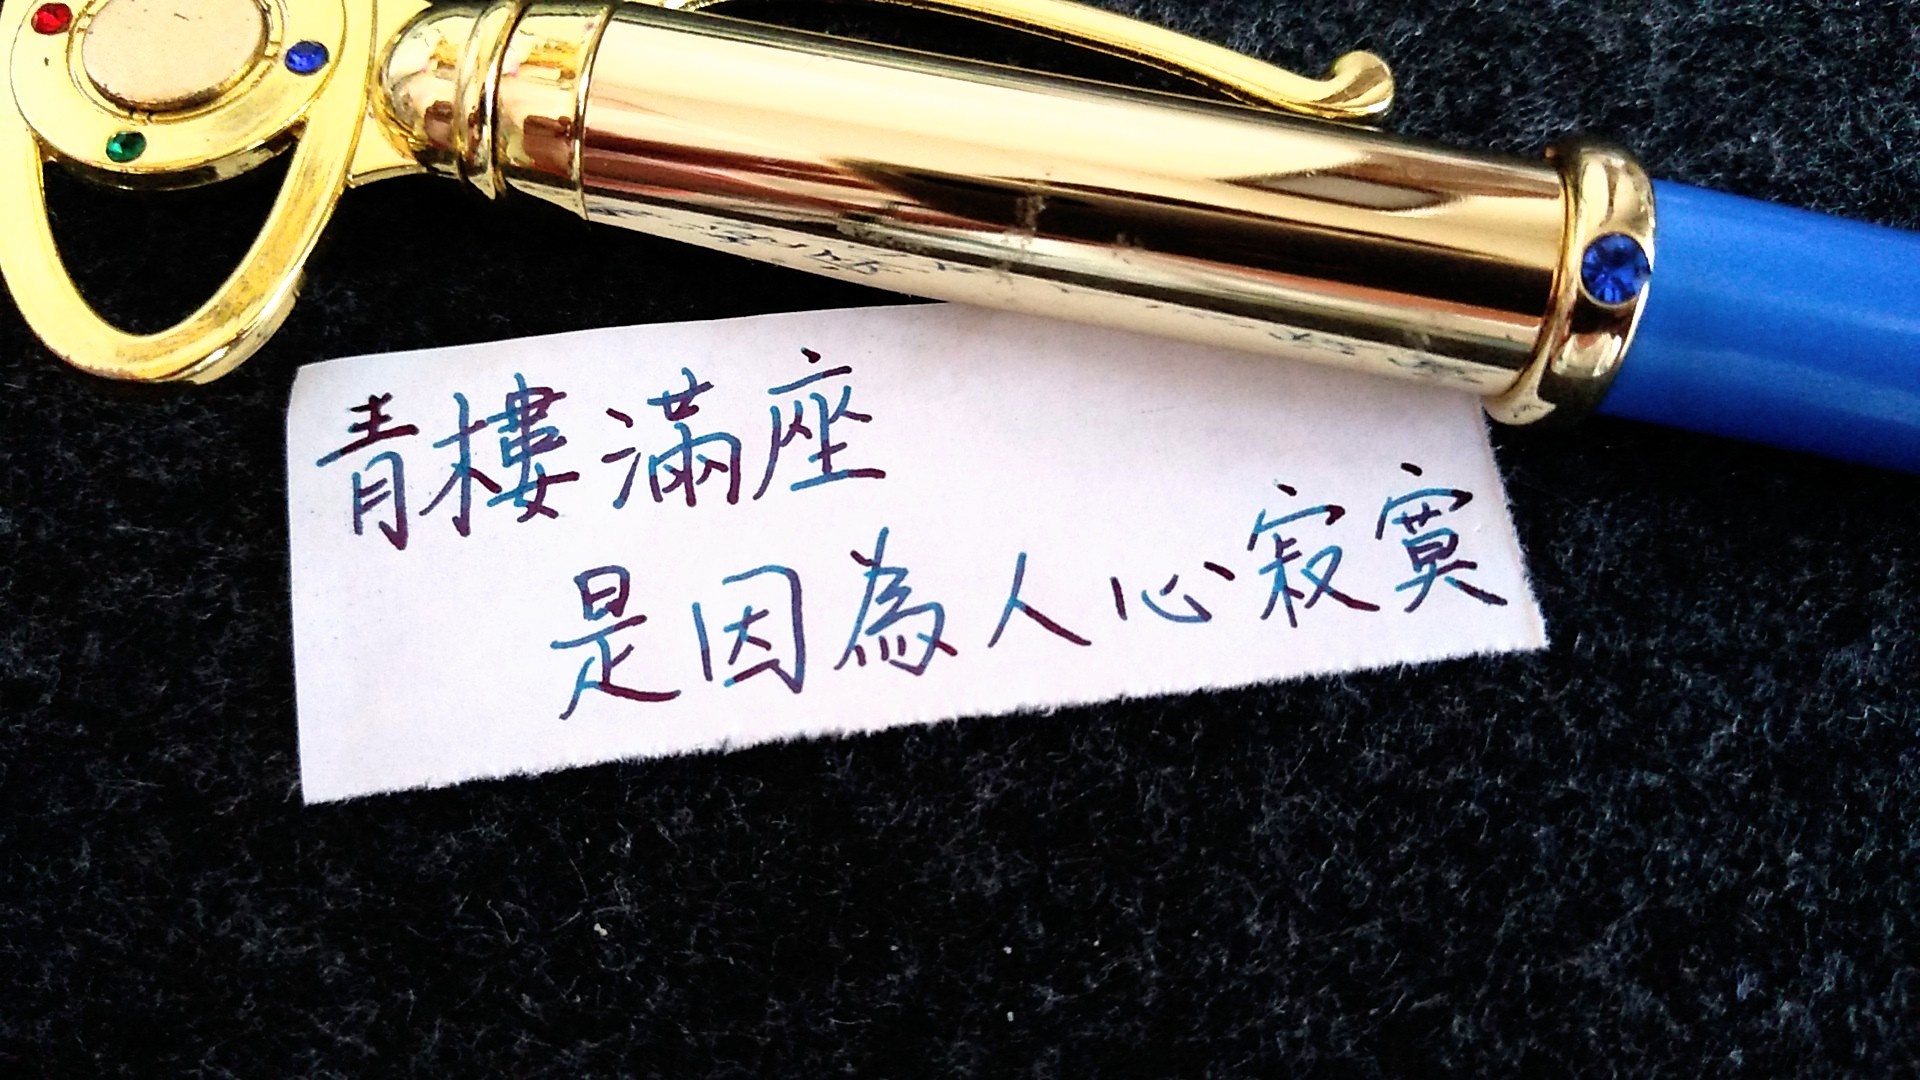 青樓滿座
是因為人心寂寞